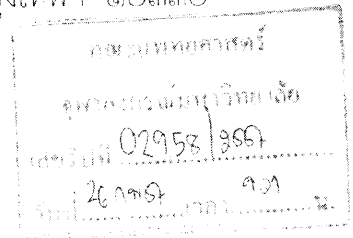 คณะแพทยศาสตร์
จุฬาลงกรณ์มหาวิทยาลัย
เลขรับที่ 02958/2567
วันที่ 26 กพ 67 เวลา 9.01 น.